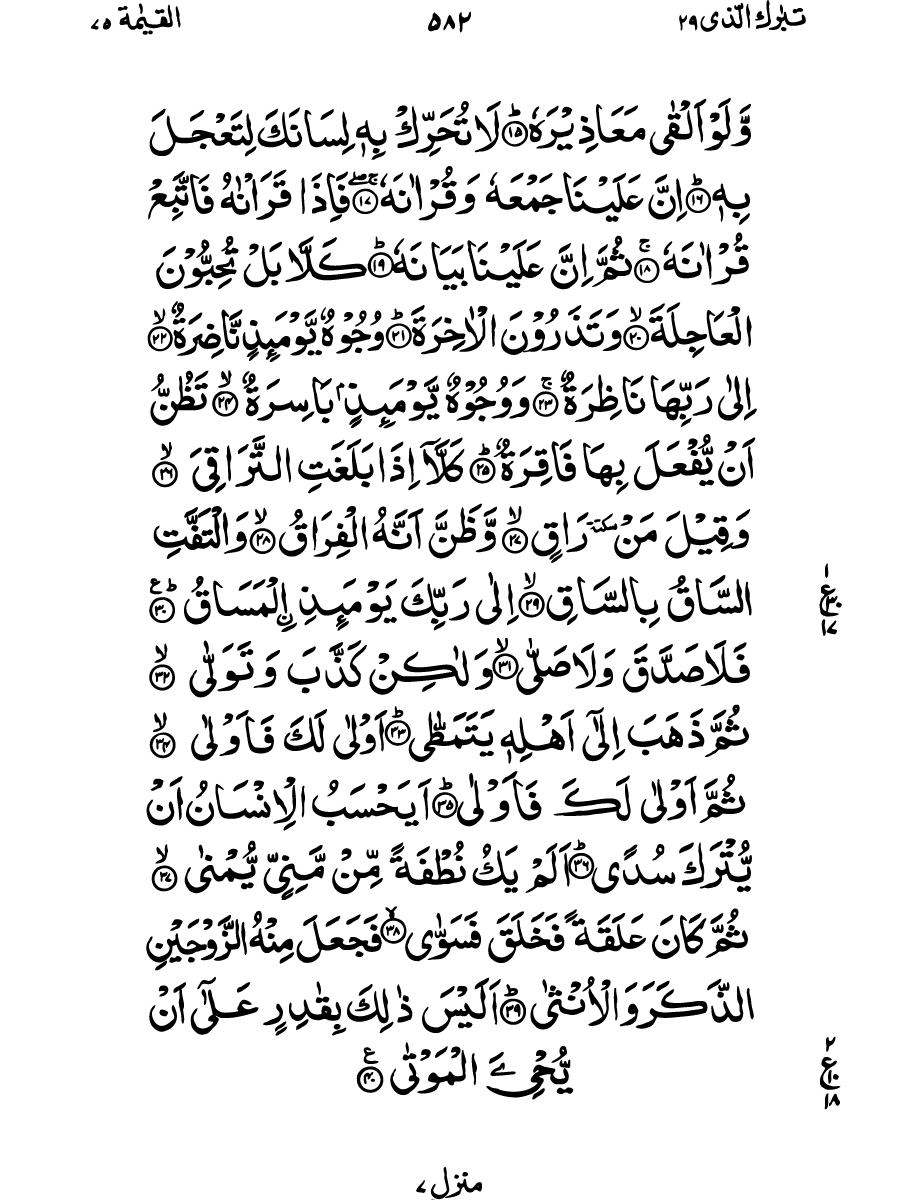 تبٰرك الّذى ٢٩ ٥٨٢ القيٰمة ٧٥
وَّلَوْ اَلْقٰى مَعَاذِيْرَهٗ ؕ﴿۱۵﴾ لَا تُحَرِّكْ بِهٖ لِسَانَكَ لِتَعْجَلَ
بِهٖ ؕ﴿۱۶﴾ اِنَّ عَلَيْنَا جَمْعَهٗ وَ قُرْاٰنَهٗ ۚۖ﴿۱۷﴾ فَاِذَا قَرَاْنٰهُ فَاتَّبِعْ
قُرْاٰنَهٗ ۚ﴿۱۸﴾ ثُمَّ اِنَّ عَلَيْنَا بَيَانَهٗ ؕ﴿۱۹﴾ كَلَّا بَلْ تُحِبُّوْنَ
الْعَاجِلَةَ ۙ﴿۲۰﴾ وَ تَذَرُوْنَ الْاٰخِرَةَ ؕ﴿۲۱﴾ وُجُوْهٌ يَّوْمَىِٕذٍ نَّاضِرَةٌ ۙ﴿۲۲﴾
اِلٰى رَبِّهَا نَاظِرَةٌ ۚ﴿۲۳﴾ وَ وُجُوْهٌ يَّوْمَىِٕذٍۭ بَاسِرَةٌ ۙ﴿۲۴﴾ تَظُنُّ
اَنْ يُّفْعَلَ بِهَا فَاقِرَةٌ ؕ﴿۲۵﴾ كَلَّاۤ اِذَا بَلَغَتِ التَّرَاقِىَ ۙ﴿۲۶﴾
وَ قِيْلَ مَنْ سكتة رَاقٍ ۙ﴿۲۷﴾ وَّ ظَنَّ اَنَّهُ الْفِرَاقُ ۙ﴿۲۸﴾ وَ الْتَفَّتِ
السَّاقُ بِالسَّاقِ ۙ﴿۲۹﴾ اِلٰى رَبِّكَ يَوْمَىِٕذِ ِ۟الْمَسَاقُ ؕع﴿۳۰﴾
١ ع ٣٠ ١٧
فَلَا صَدَّقَ وَ لَا صَلّٰى ۙ﴿۳۱﴾ وَ لٰكِنْ كَذَّبَ وَ تَوَلّٰى ۙ﴿۳۲﴾
ثُمَّ ذَهَبَ اِلٰۤى اَهْلِهٖ يَتَمَطّٰى ؕ﴿۳۳﴾ اَوْلٰى لَكَ فَاَوْلٰى ۙ﴿۳۴﴾
ثُمَّ اَوْلٰى لَكَ فَاَوْلٰى ؕ﴿۳۵﴾ اَيَحْسَبُ الْاِنْسَانُ اَنْ
يُّتْرَكَ سُدًى ؕ﴿۳۶﴾ اَلَمْ يَكُ نُطْفَةً مِّنْ مَّنِىٍّ يُّمْنٰى ۙ﴿۳۷﴾
ثُمَّ كَانَ عَلَقَةً فَخَلَقَ فَسَوّٰى ۙ﴿۳۸﴾ فَجَعَلَ مِنْهُ الزَّوْجَيْنِ
الذَّكَرَ وَ الْاُنْثٰى ؕ﴿۳۹﴾ اَلَيْسَ ذٰلِكَ بِقٰدِرٍ عَلٰۤى اَنْ
يُّحْیِۦَ الْمَوْتٰى ع﴿۴۰﴾
٢ ع ١٠ ١٨
منزل ٧